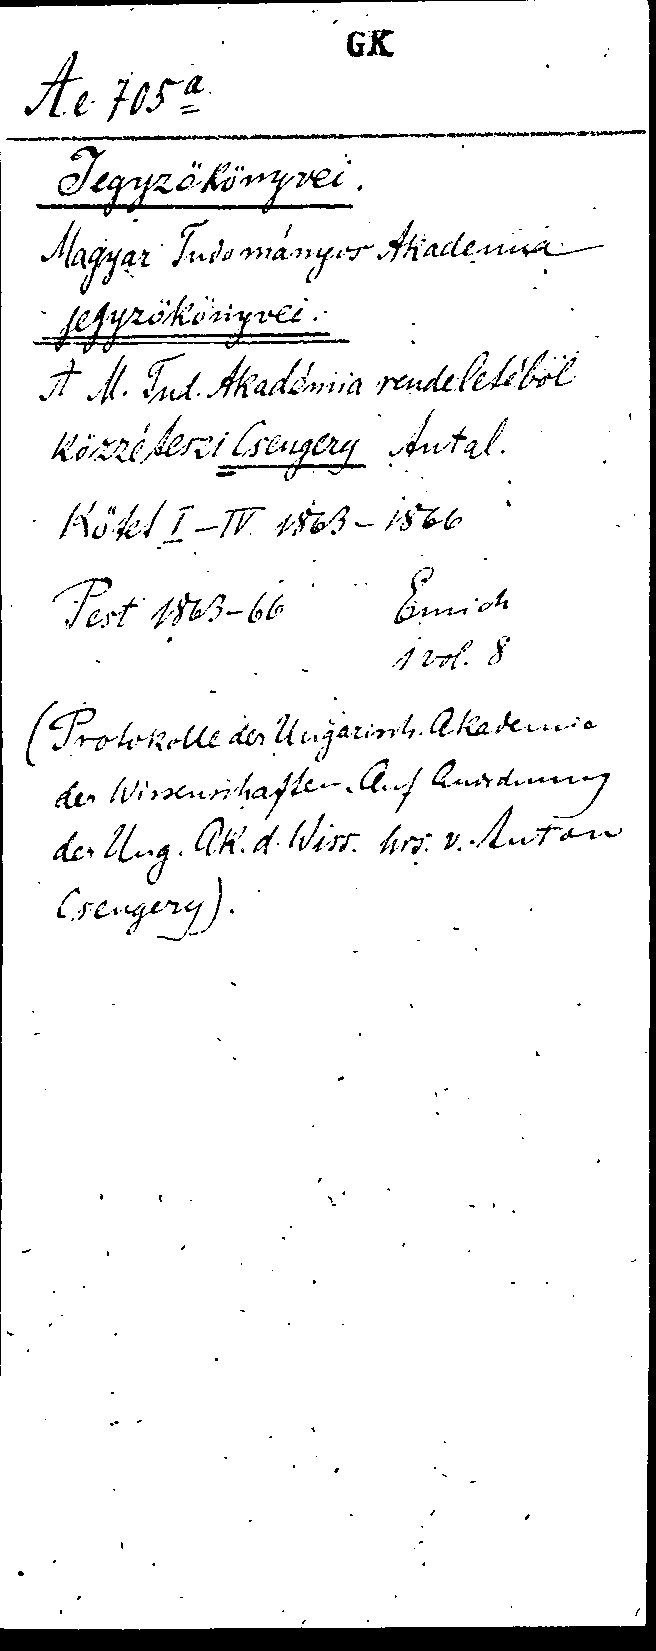 GK
Ae 705 a
Jegyzőkönyvei.
Magyar Tudományos Akademia
jegyzőkönyvei.
A M. Tud. Akadémia rendeletéből
közzéteszi Csengery Antal.
Kötet I–IV. 1863–1866
Pest 1863–66 Emich
1 vol. 8
(Protokolle der Ungarisch. Akademie
der Wissenschaften. Auf Anordnung
der Ung. Ak. d. Wiss. hrs. v. Anton
Csengery).